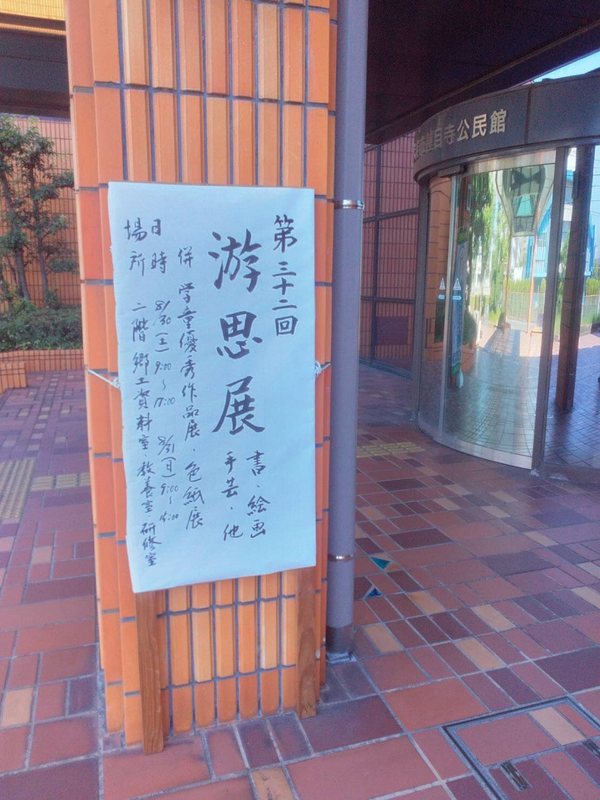 第三十二回
游思展
書・絵画
手芸・他
併 学童優秀作品展・色紙展
日時 8/30(土)9:00〜17:00 8/31(日)9:00〜
場所 二階 郷土資料室 教養室 研修室
寺公民館